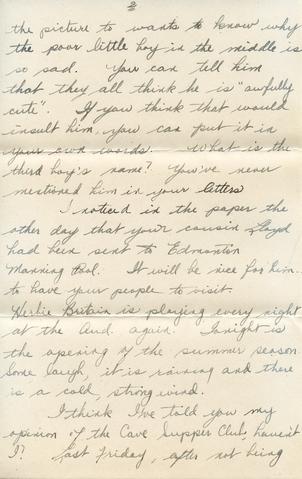 2
the picture to wants to know why
the poor little boy in the middle is
so sad. You can tell him
that they all think he is "awfully
cute". If you think that would
insult him, you can put it in
your own words. What is the
third boy's name? You've never
mestioned him in your letters
I noticed in the paper the
other day that your cousin Lloyd
had been sent to Edmonton
Manning Pool. It will be nice for him
to have your people to visit.
Herbie Britain is playing every night
at the Aud. again. Tonight is
the opening of the summer season.
Some laugh, it is raining and there
is a cold, strong wind.
I think I've told you my
opinion of the Cave Supper Club, haven't
I? Last Friday, after not being